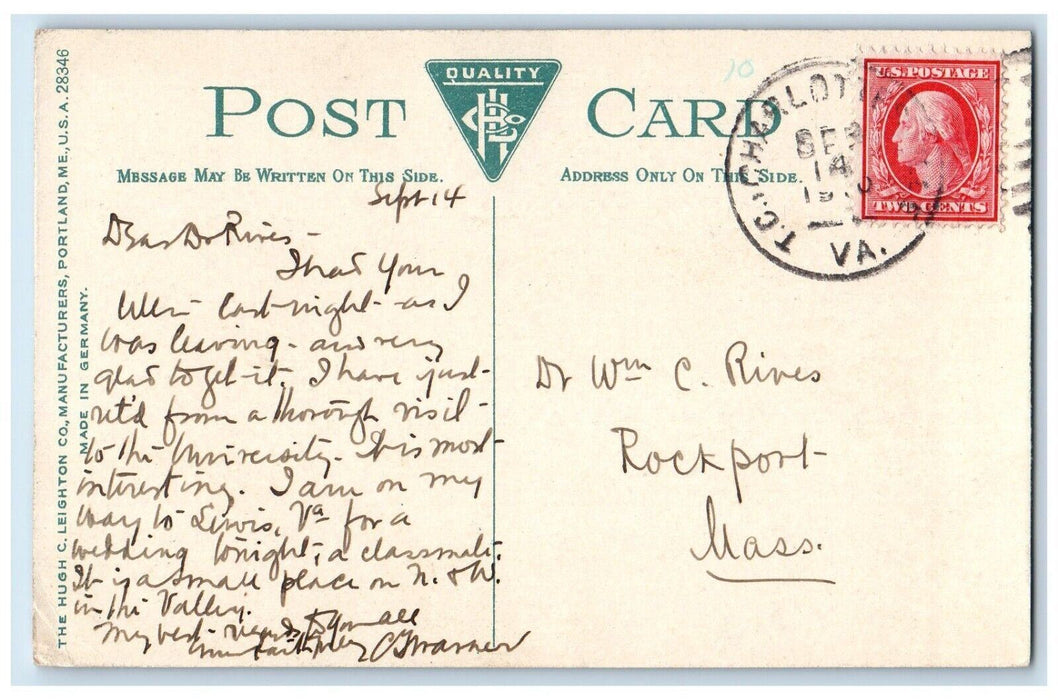 POST CARD
QUALITY
HCL Co
MESSAGE MAY BE WRITTEN ON THIS SIDE.
ADDRESS ONLY ON THIS SIDE.
THE HUGH C. LEIGHTON CO., MANUFACTURERS, PORTLAND, ME., U.S.A. 28346
MADE IN GERMANY.
10
T.C. CHARLOTT
SEP
14
VA.
U.S. POSTAGE
TWO CENTS
Sept 14
Dear Dr Rives -
I had your
last night - as I
was leaving - and very
glad to get it. I have just
ret'd from a thorough visit
to the University. It is most
interesting. I am on my
way to Va for a
wedding tonight, a classmate.
It is a small place on N. & W.
in the Valley.
My best to you all
Dr Wm C. Rives
Rockport
Mass.